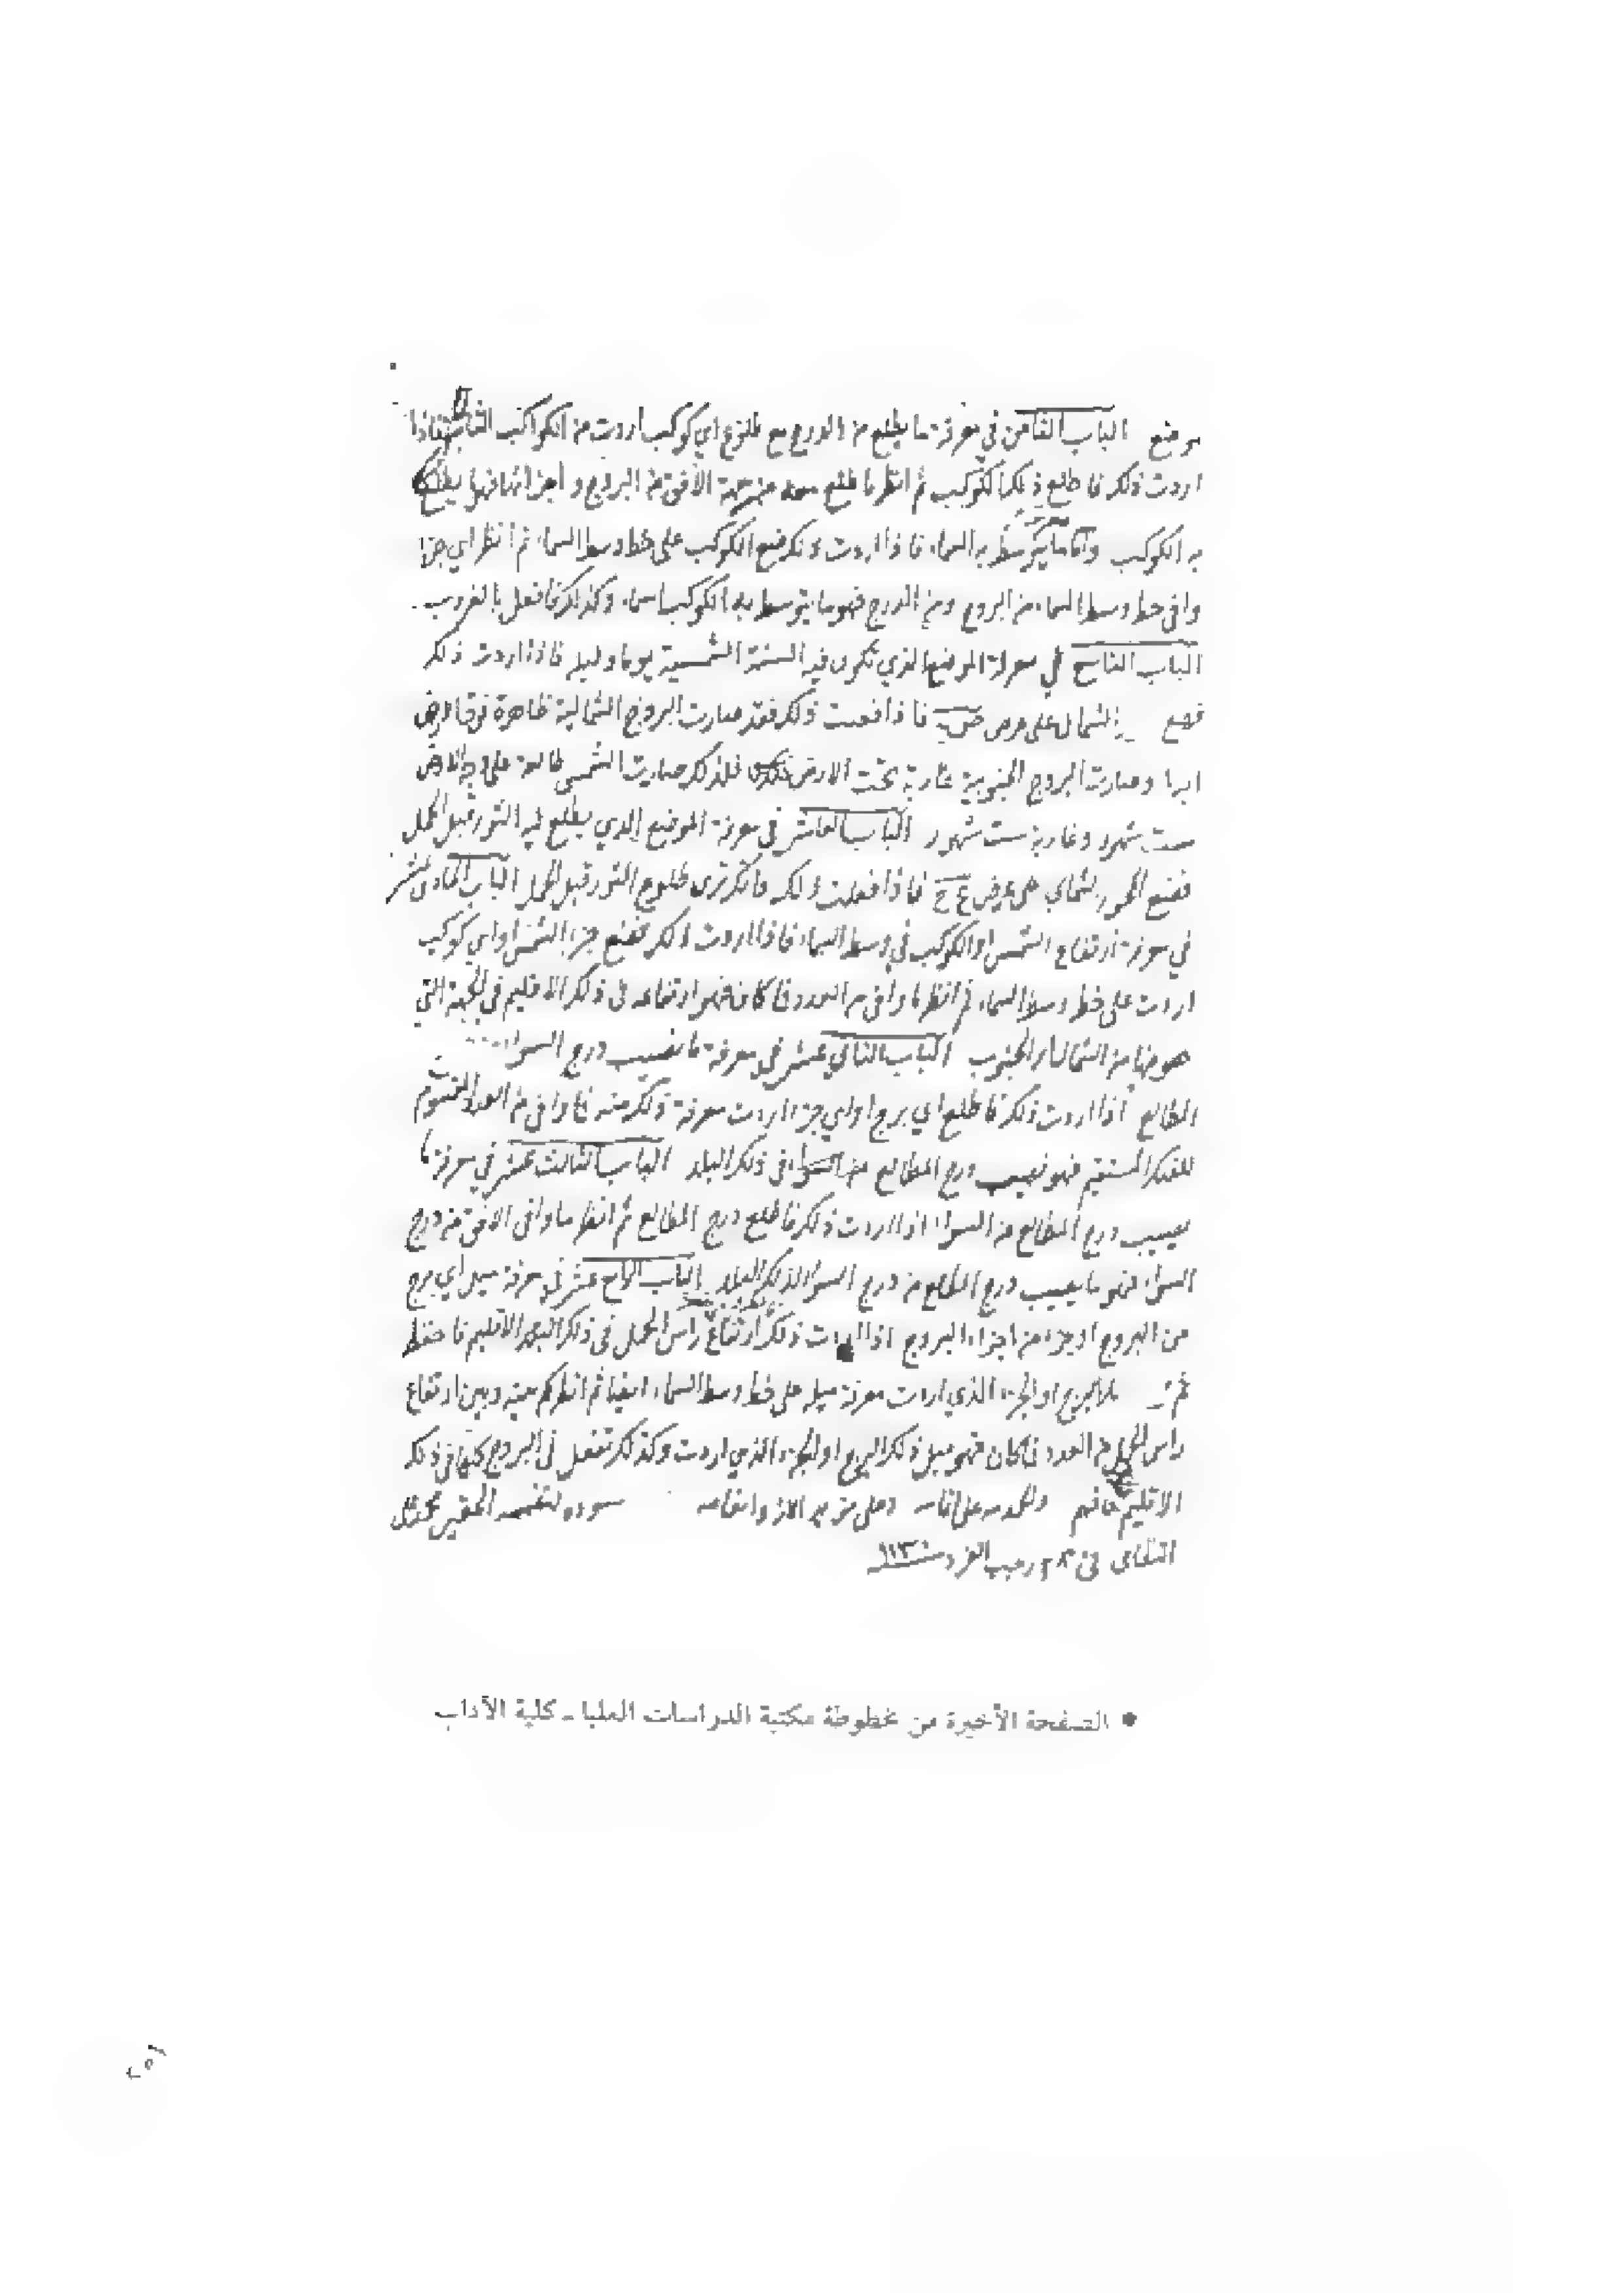 موضع الباب الثامن في معرفة ما يطلع من الدرج مع طلوع اي كوكب اردت من الكواكب الثابتة فاذا
اردت ذلك فاطلع ذلك الكوكب ثم انظر ما طلع معه من جهة الأفق من البروج و اجزائها فهو ما يطلع
به الكوكب وأما ما يتوسط به السماء فاذا اردت ذلك فضع الكوكب على خط وسط السماء ثم انظر اي جزء
وافى خط وسط السماء من البروج ومن الدرج فهو ما يتوسط به الكوكب السماء وكذلك فافعل بالغروب
الباب التاسع في معرفة الموضع الذي تكون فيه السنة الشمسية يوما وليلة فاذا اردت ذلك
فضع الشمال على عرض فاذا فعلت ذلك فقد صارت البروج الشمالية ظاهرة فوق الارض
ابدا وصارت البروج الجنوبية غاربة تحت الارض فلذلك صارت الشمس طالعة على وجه الارض
ست شهور وغاربة ست شهور الباب العاشر في معرفة الموضع الذي يطلع فيه الثور قبل الحمل
فضع المحور الشمالي على عرض فاذا فعلت ذلك فانك ترى طلوع الثور قبل الحمل الباب الحادي عشر
في معرفة ارتفاع الشمس او الكوكب في وسط السماء فاذا اردت ذلك فضع جزء الشمس او اي كوكب
اردت على خط وسط السماء ثم انظر ما وافى من العدد فما كان فهو ارتفاعه في ذلك الاقليم في الجهة التي
هو فيها من الشمال او الجنوب الباب الثاني عشر في معرفة ما نصيب درج السواء
المطالع اذا اردت ذلك فاطلع اي برج او اي جزء اردت معرفة ذلك منه فما وافى من العدد المقسوم
للفلك المستقيم فهو نصيب درج المطالع من السواء في ذلك البلد الباب الثالث عشر في معرفة ما
يصيب درج المطالع من السواء اذا اردت ذلك فاطلع درج المطالع ثم انظر ما وافى الافق من درج
السواء فهو ما يصيب درج المطالع من درج السواء لذلك البلد الباب الرابع عشر في معرفة ميل اي برج
من البروج او جزء من اجزاء البروج اذا اردت ذلك ارتفاع راس الحمل في ذلك الاقليم فاحفظه
ثم البرج او الجزء الذي اردت معرفة ميله على خط وسط السماء ايضا ثم انظر كم بينه وبين ارتفاع
راس الحمل من العدد فما كان فهو ميل ذلك البرج او الجزء الذي اردت وكذلك تفعل في البروج كلها في ذلك
الاقليم فافهم والحمد لله على سوده لنفسه الحقير
في رجب الفرد سنة ١١٣
• الصفحة الأخيرة من مخطوطة مكتبة الدراسات العليا - كلية الآداب